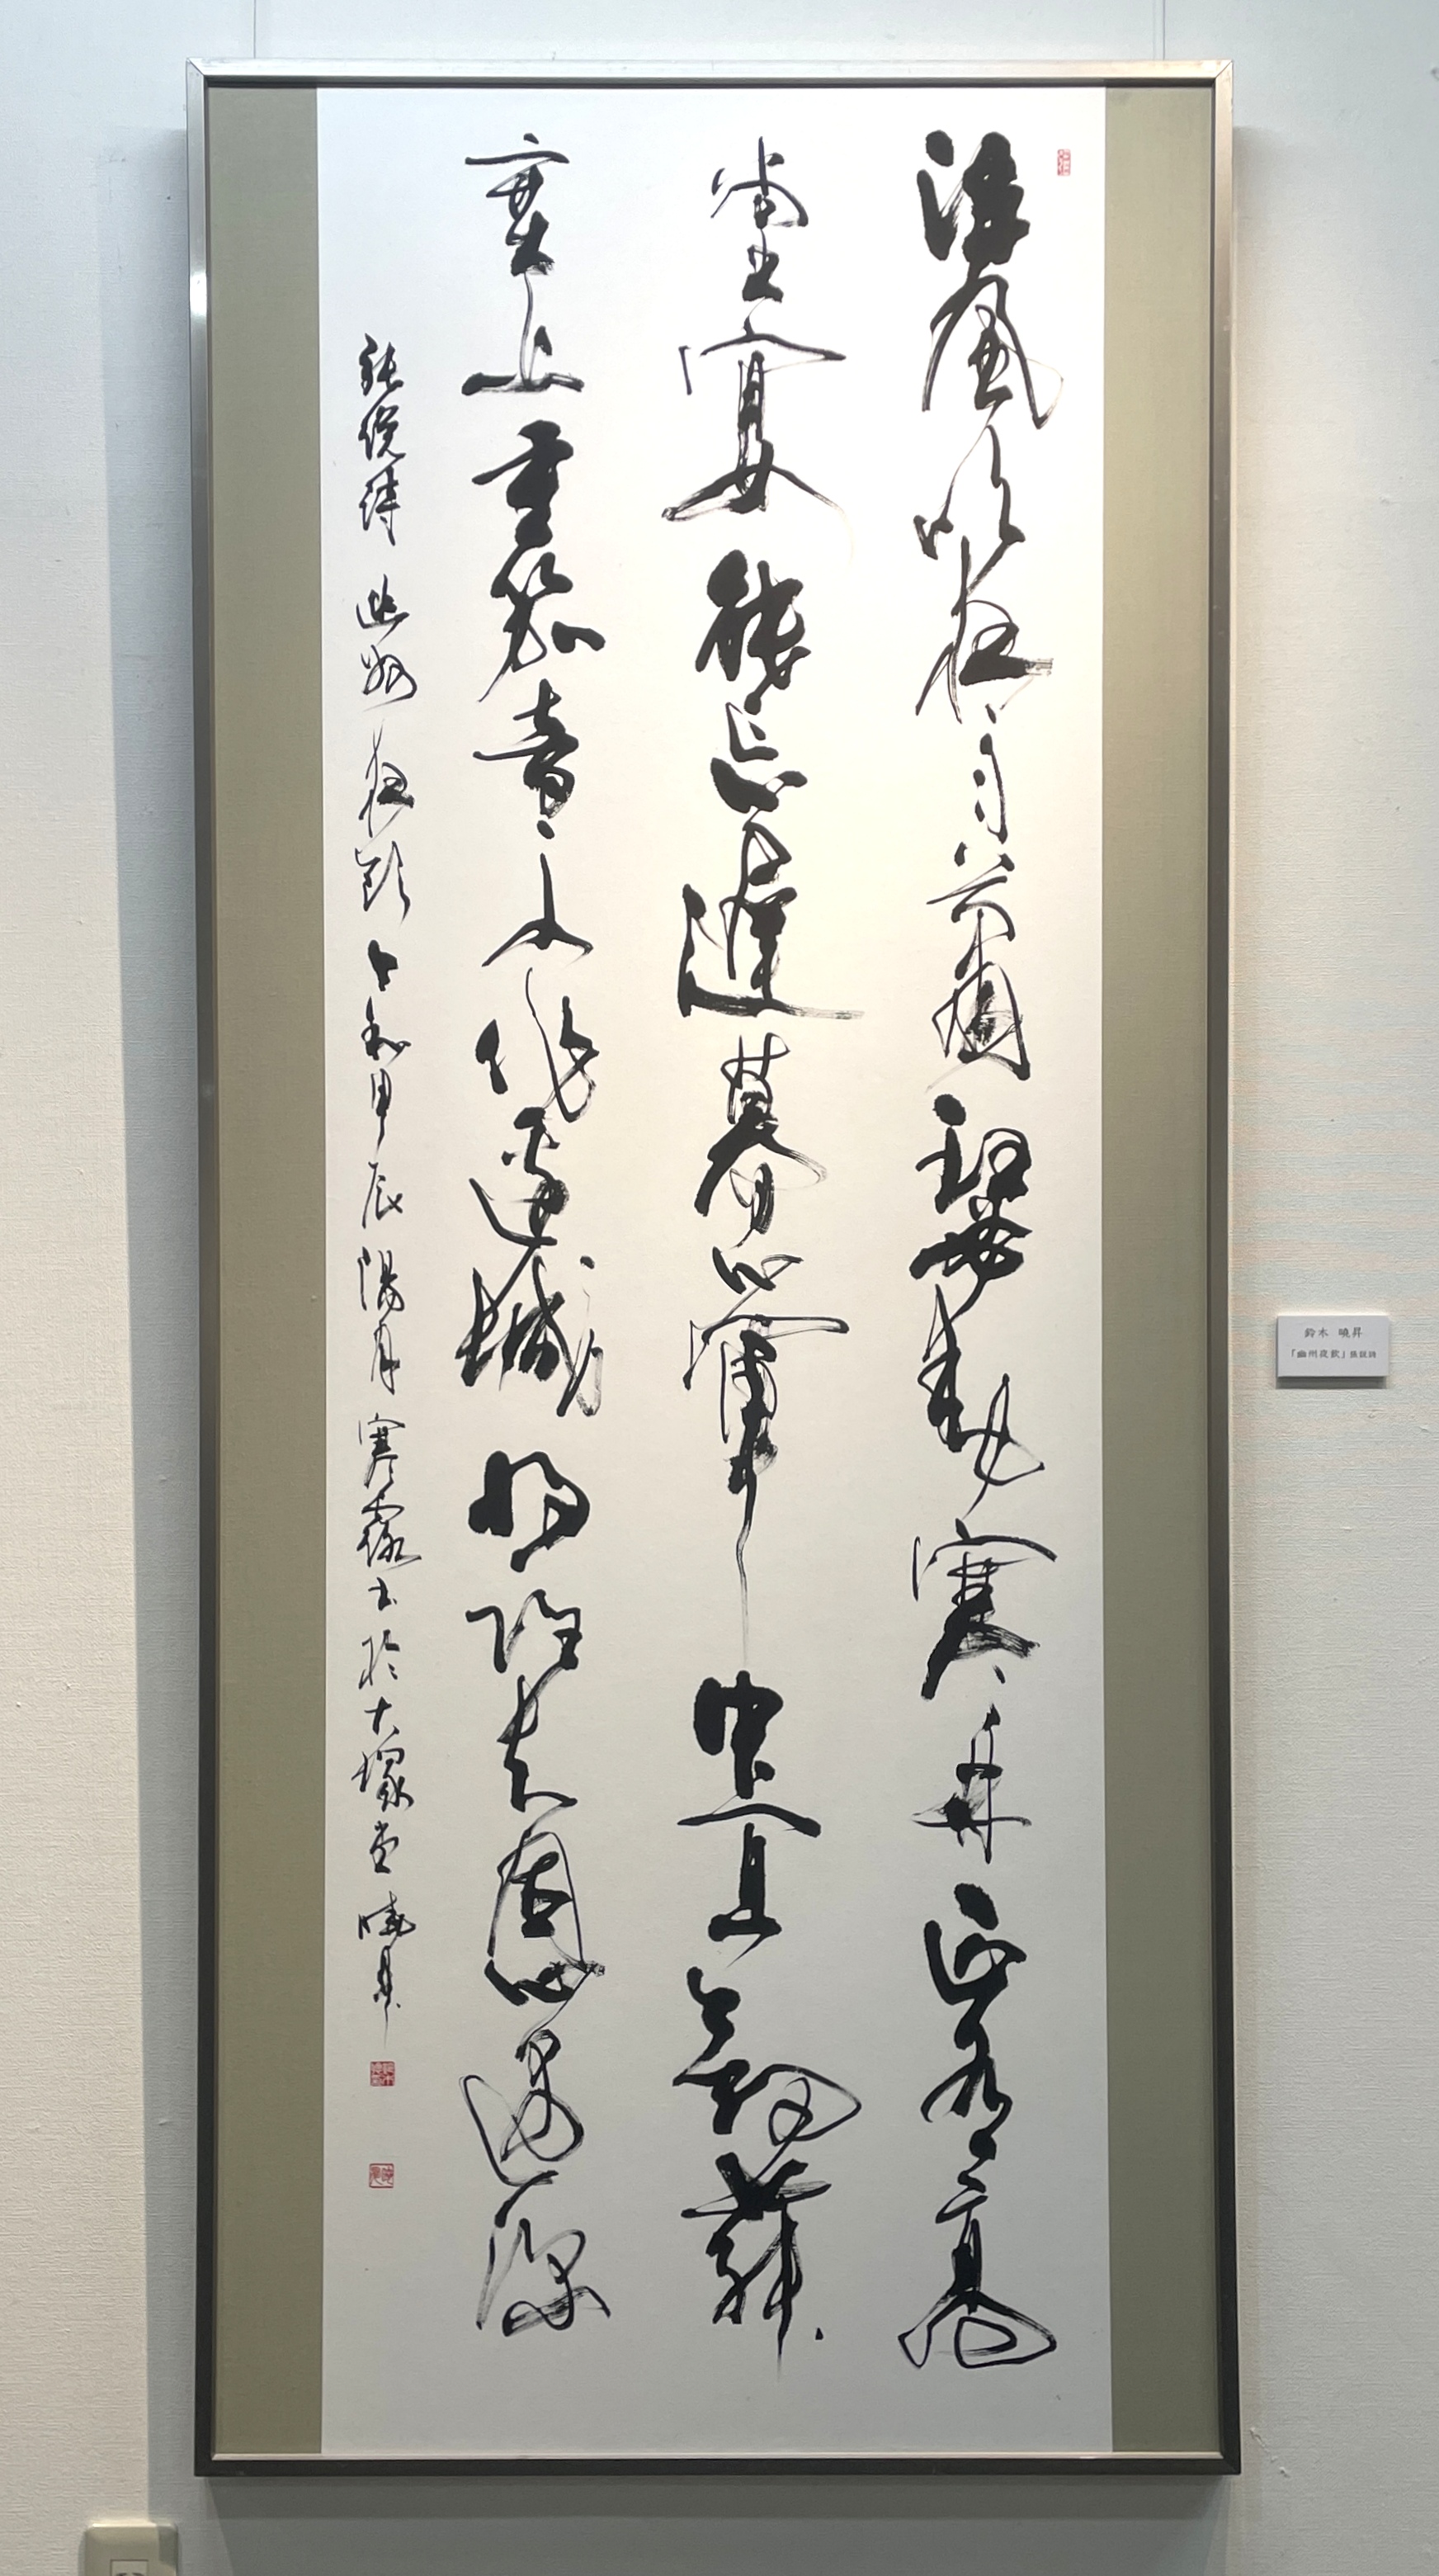 涼風吹夜雨蕭瑟動寒林正有高
堂宴能忘遲暮心軍中宜劔舞
塞上重笳音不作邊城將誰知恩遇深
張説詩 幽州夜飲 令和甲辰陽月 寒露書於大塚堂 曉昇
鈴木 曉昇
「幽州夜飲」張説詩